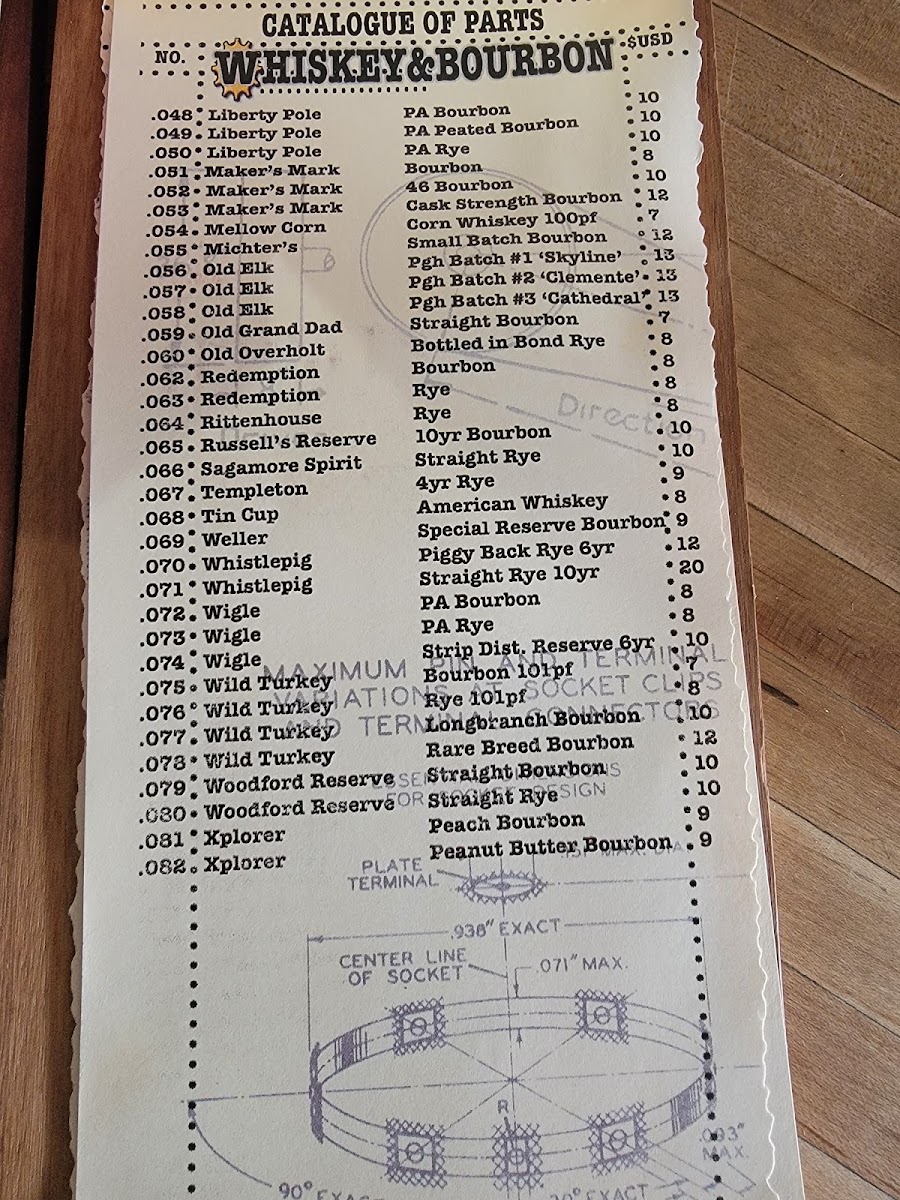 CATALOGUE OF PARTS
NO. WHISKEY&BOURBON $USD
.048 Liberty Pole PA Bourbon 10
.049 Liberty Pole PA Peated Bourbon 10
.050 Liberty Pole PA Rye 10
.051 Maker's Mark Bourbon 8
.052 Maker's Mark 46 Bourbon 10
.053 Maker's Mark Cask Strength Bourbon 12
.054 Mellow Corn Corn Whiskey 100pf 7
.055 Michter's Small Batch Bourbon 12
.056 Old Elk Pgh Batch #1 'Skyline' 13
.057 Old Elk Pgh Batch #2 'Clemente' 13
.058 Old Elk Pgh Batch #3 'Cathedral' 13
.059 Old Grand Dad Straight Bourbon 7
.060 Old Overholt Bottled in Bond Rye 8
.062 Redemption Bourbon 8
.063 Redemption Rye 8
.064 Rittenhouse Rye 8
.065 Russell's Reserve 10yr Bourbon 10
.066 Sagamore Spirit Straight Rye 10
.067 Templeton 4yr Rye 9
.068 Tin Cup American Whiskey 8
.069 Weller Special Reserve Bourbon 9
.070 Whistlepig Piggy Back Rye 6yr 12
.071 Whistlepig Straight Rye 10yr 20
.072 Wigle PA Bourbon 8
.073 Wigle PA Rye 8
.074 Wigle Strip Dist. Reserve 6yr 10
.075 Wild Turkey Bourbon 101pf 7
.076 Wild Turkey Rye 101pf 8
.077 Wild Turkey Longbranch Bourbon 10
.078 Wild Turkey Rare Breed Bourbon 12
.079 Woodford Reserve Straight Bourbon 10
.080 Woodford Reserve Straight Rye 10
.081 Xplorer Peach Bourbon 9
.082 Xplorer Peanut Butter Bourbon 9
Direction
MAXIMUM PIN AND TERMINAL
VARIATIONS AT SOCKET CLIPS
AND TERMINAL CONNECTORS
FOR SOCKET DESIGN
PLATE
TERMINAL
.938" EXACT
CENTER LINE
OF SOCKET
.071" MAX.
R
.093"
MAX.
90° EXACT